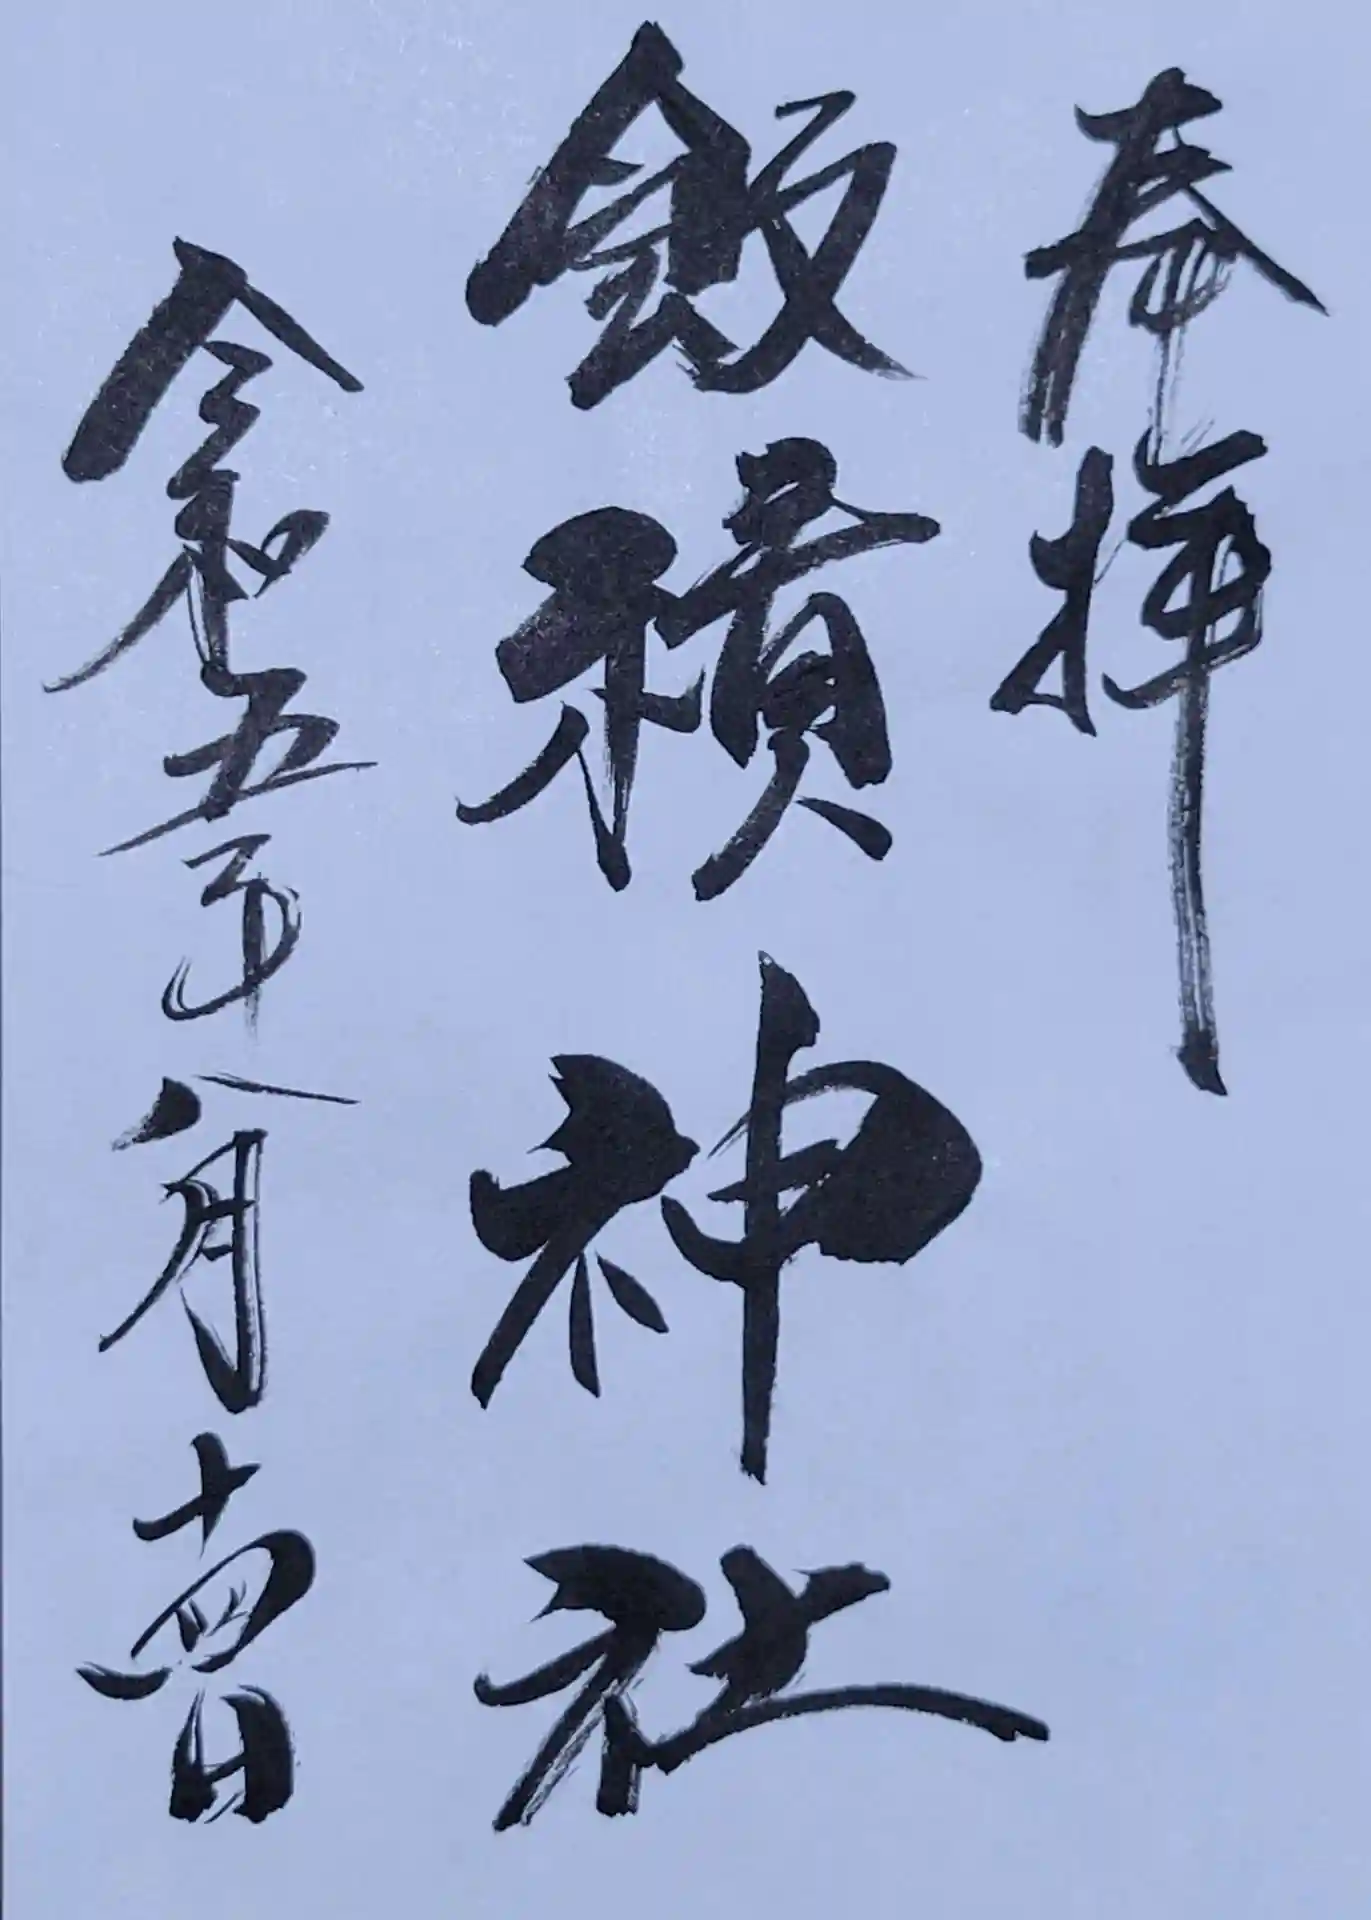 奉拝
飯積神社
令和五年八月十四日